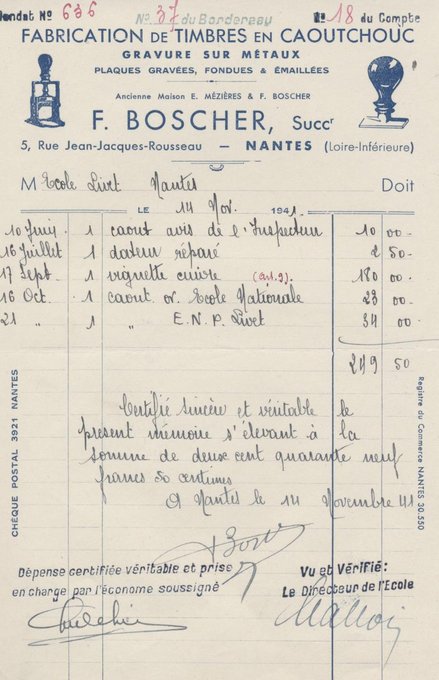 Mandat Nº 636 Nº 37 du Bordereau Nº 18 du Compte
FABRICATION DE TIMBRES EN CAOUTCHOUC
GRAVURE SUR MÉTAUX
PLAQUES GRAVÉES, FONDUES & ÉMAILLÉES
Ancienne Maison E. MÉZIÈRES & F. BOSCHER
F. BOSCHER, Succr
5, Rue Jean-Jacques-Rousseau — NANTES (Loire-Inférieure)
M Ecole Livet Nantes Doit
LE 14 Nov. 1941.
10 Juin 1 caout avis de l'Inspecteur 10 00
16 Juillet 1 dateur réparé 2 50
17 Sept. 1 vignette cuivre 180 00
16 Oct. 1 caout. or. Ecole Nationale 23 00
21 " 1 " E.N.P. Livet 34 00
249 50
Certifié sincère et véritable le
présent mémoire s'élevant à la
somme de deux cent quarante neuf
francs 50 centimes
A Nantes le 14 Novembre 41
CHÈQUE POSTAL 3921 NANTES
Registre du Commerce NANTES 30.550
Dépense certifiée véritable et prise
en charge par l'économe soussigné
Vu et Vérifié:
Le Directeur de l'Ecole